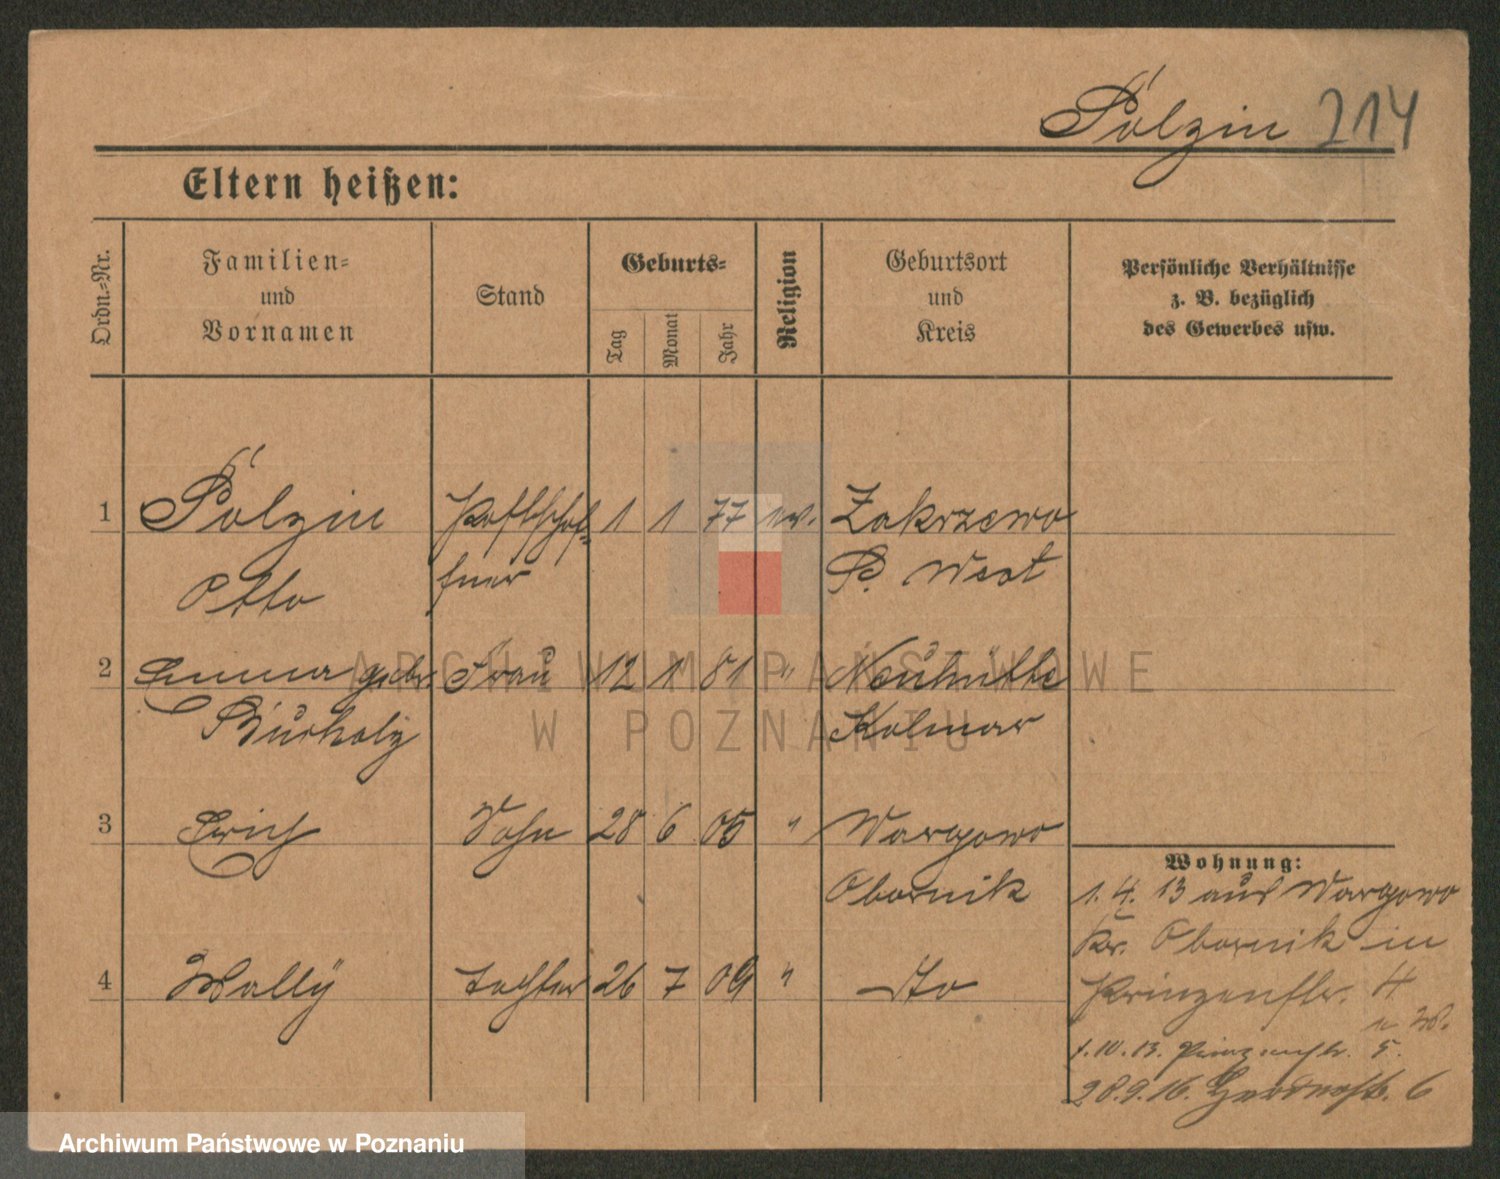 Pölzin 214
Eltern heißen:
Ordn.-Nr.
Familien- und Vornamen
Stand
Geburts-
Tag Monat Jahr
Religion
Geburtsort und Kreis
Persönliche Verhältnisse
z. B. bezüglich
des Gewerbes usw.
1 Pölzin Postschaf- 1 1 77 ev. Zakrzewo
Otto fner P. West
2 Emma geb. Frau 12 1 81 " Neuhütte
Burholz Kolmar
3 Erich Sohn 28 6 05 " Wargowo
Obornik
4 Wally Tochter 26 7 09 " dto
Wohnung:
1. 4. 13 aus Wargowo
Kr. Obornik in
Prinzenstr. 4
1.10.13. Prinzenstr. 5.
28.9.16. 6
ARCHIWUM PAŃSTWOWE
W POZNANIU
Archiwum Państwowe w Poznaniu